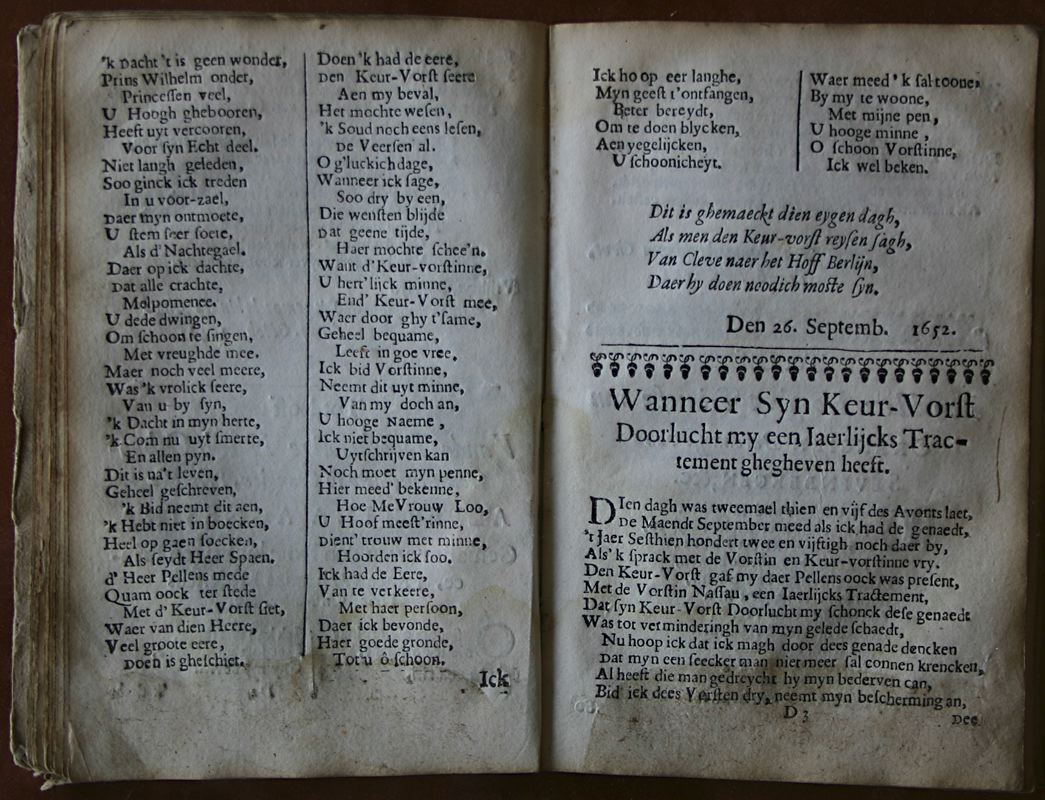 'k Dacht 't is geen wonder,
Prins Wilhelm onder,
Princessen veel,
U Hoogh ghebooren,
Heeft uyt vercooren,
Voor syn Echt deel.
Niet langh geleden,
Soo ginck ick treden
In u voor-zael,
Daer myn ontmoete,
U stem seer soete,
Als d'Nachtegael.
Daer op ick dachte,
Dat alle crachte,
Molpomenee.
U dede dwingen,
Om schoon te singen,
Met vreughde mee.
Maer noch veel meere,
Was 'k vrolick seere,
Van u by syn,
'k Dacht in myn herte,
'k Com nu uyt smerte,
En allen pyn.
Dit is na't leven,
Geheel geschreven,
'k Bid neemt dit aen,
'k Hebt niet in boecken,
Heel op gaen soecken,
Als seydt Heer Spaen.
d' Heer Pellens mede
Quam oock ter stede
Met d'Keur-Vorst siet,
Waer van dien Heere,
Veel groote eere,
Doen is gheschiet.
Doen 'k had de eere,
Den Keur-Vorst seere
Aen my beval,
Het mochte wesen,
'k Soud noch eens lesen,
De Veersen al.
O g'luckich dage,
Wanneer ick sage,
Soo dry by een,
Die wensten blijde
Dat geene tijde,
Haer mochte schee'n.
Want d'Keur-vorstinne,
U hert'lijck minne,
End' Keur-Vorst mee,
Waer door ghy t'same,
Geheel bequame,
Leeft in goe vree.
Ick bid Vorstinne,
Neemt dit uyt minne,
Van my doch an,
U hooge Naeme,
Ick niet bequame,
Uytschrijven kan
Noch moet myn penne,
Hier meed' bekenne,
Hoe MeVrouw Loo,
U Hoof meest'rinne,
Dient' trouw met minne,
Hoorden ick soo.
Ick had de Eere,
Van te verkeere,
Met haer persoon,
Daer ick bevonde,
Haer goede gronde,
Tot u ô schoon.
Ick
Ick hoop eer langhe,
Myn geest t'ontfangen,
Beter bereydt,
Om te doen blycken,
Aen yegelijcken,
U schoonicheyt.
Waer meed 'k sal toone,
By my te woone,
Met mijne pen,
U hooge minne,
O schoon Vorstinne,
Ick wel beken.
Dit is ghemaeckt dien eygen dagh,
Als men den Keur-vorst reysen sagh,
Van Cleve naer het Hoff Berlijn,
Daer hy doen noodich moste syn.
Den 26. Septemb. 1652.
Wanneer Syn Keur-Vorst
Doorlucht my een Iaerlijcks Trac-
tement ghegheven heeft.
DIen dagh was tweemael thien en vijf des Avonts laet,
De Maendt September meed als ick had de genaedt,
't Jaer Sesthien hondert twee en vijftigh noch daer by,
Als 'k sprack met de Vorstin en Keur-vorstinne vry.
Den Keur-Vorst gaf my daer Pellens oock was present,
Met de Vorstin Nassau, een Iaerlijcks Tractement,
Dat syn Keur-Vorst Doorlucht my schonck dese genaedt
Was tot verminderingh van myn gelede schaedt,
Nu hoop ick dat ick magh door dees genade dencken
Dat myn een seecker man niet meer sal connen krencken,
Al heeft die man gedreycht hy myn bederven can,
Bid ick dees Vorsten dry, neemt myn bescherming an,
D 3
Dee